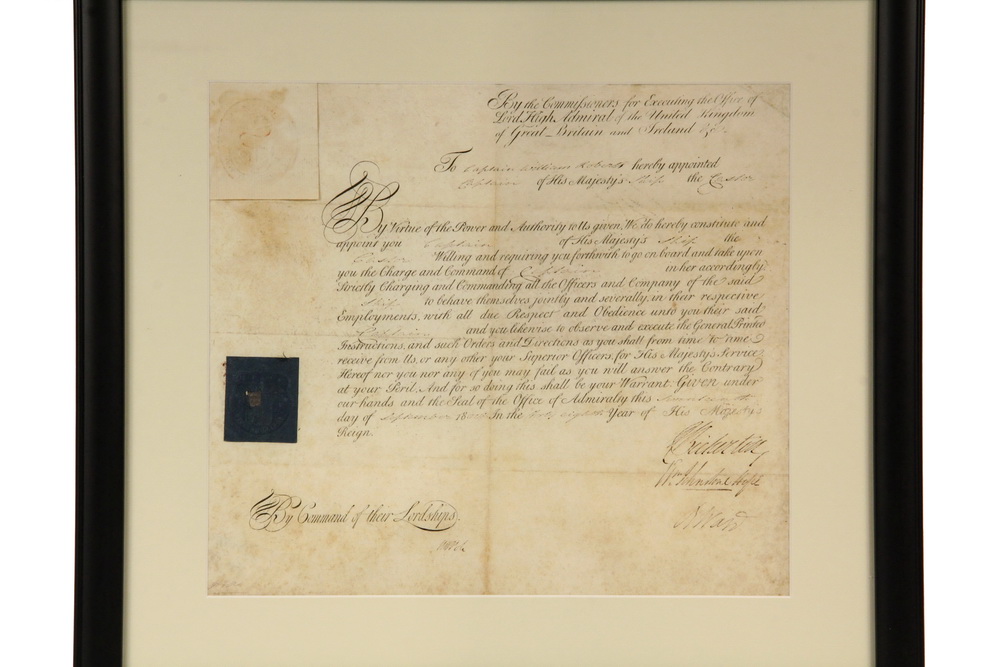 By the Commissioners for Executing the Office of
Lord High Admiral of the United Kingdom
of Great-Britain and Ireland &c.
To Captain William Roberts hereby appointed
Captain of His Majesty's Ship the Castor
By Virtue of the Power and Authority to Us given, We do hereby constitute and
appoint you Captain of His Majesty's Ship the
Castor Willing and requiring you forthwith to go on board and take upon
you the Charge and Command of Captain in her accordingly
Strictly Charging and Commanding all the Officers and Company of the said
Ship to behave themselves jointly and severally, in their respective
Employments, with all due Respect and Obedience unto you their said
Captain and you likewise to observe and execute the General Printed
Instructions, and such Orders and Directions as you shall from time to time
receive from Us, or any other your Superior Officers, for His Majesty's Service
Hereof nor you nor any of you may fail as you will answer the Contrary
at your Peril. And for so doing this shall be your Warrant. Given under
our hands and the Seal of the Office of Admiralty this
day of September 18 In the eighth Year of His Majesty's
Reign.
R Bickerton
Wm Johnstone Hope
R Ward
By Command of their Lordships